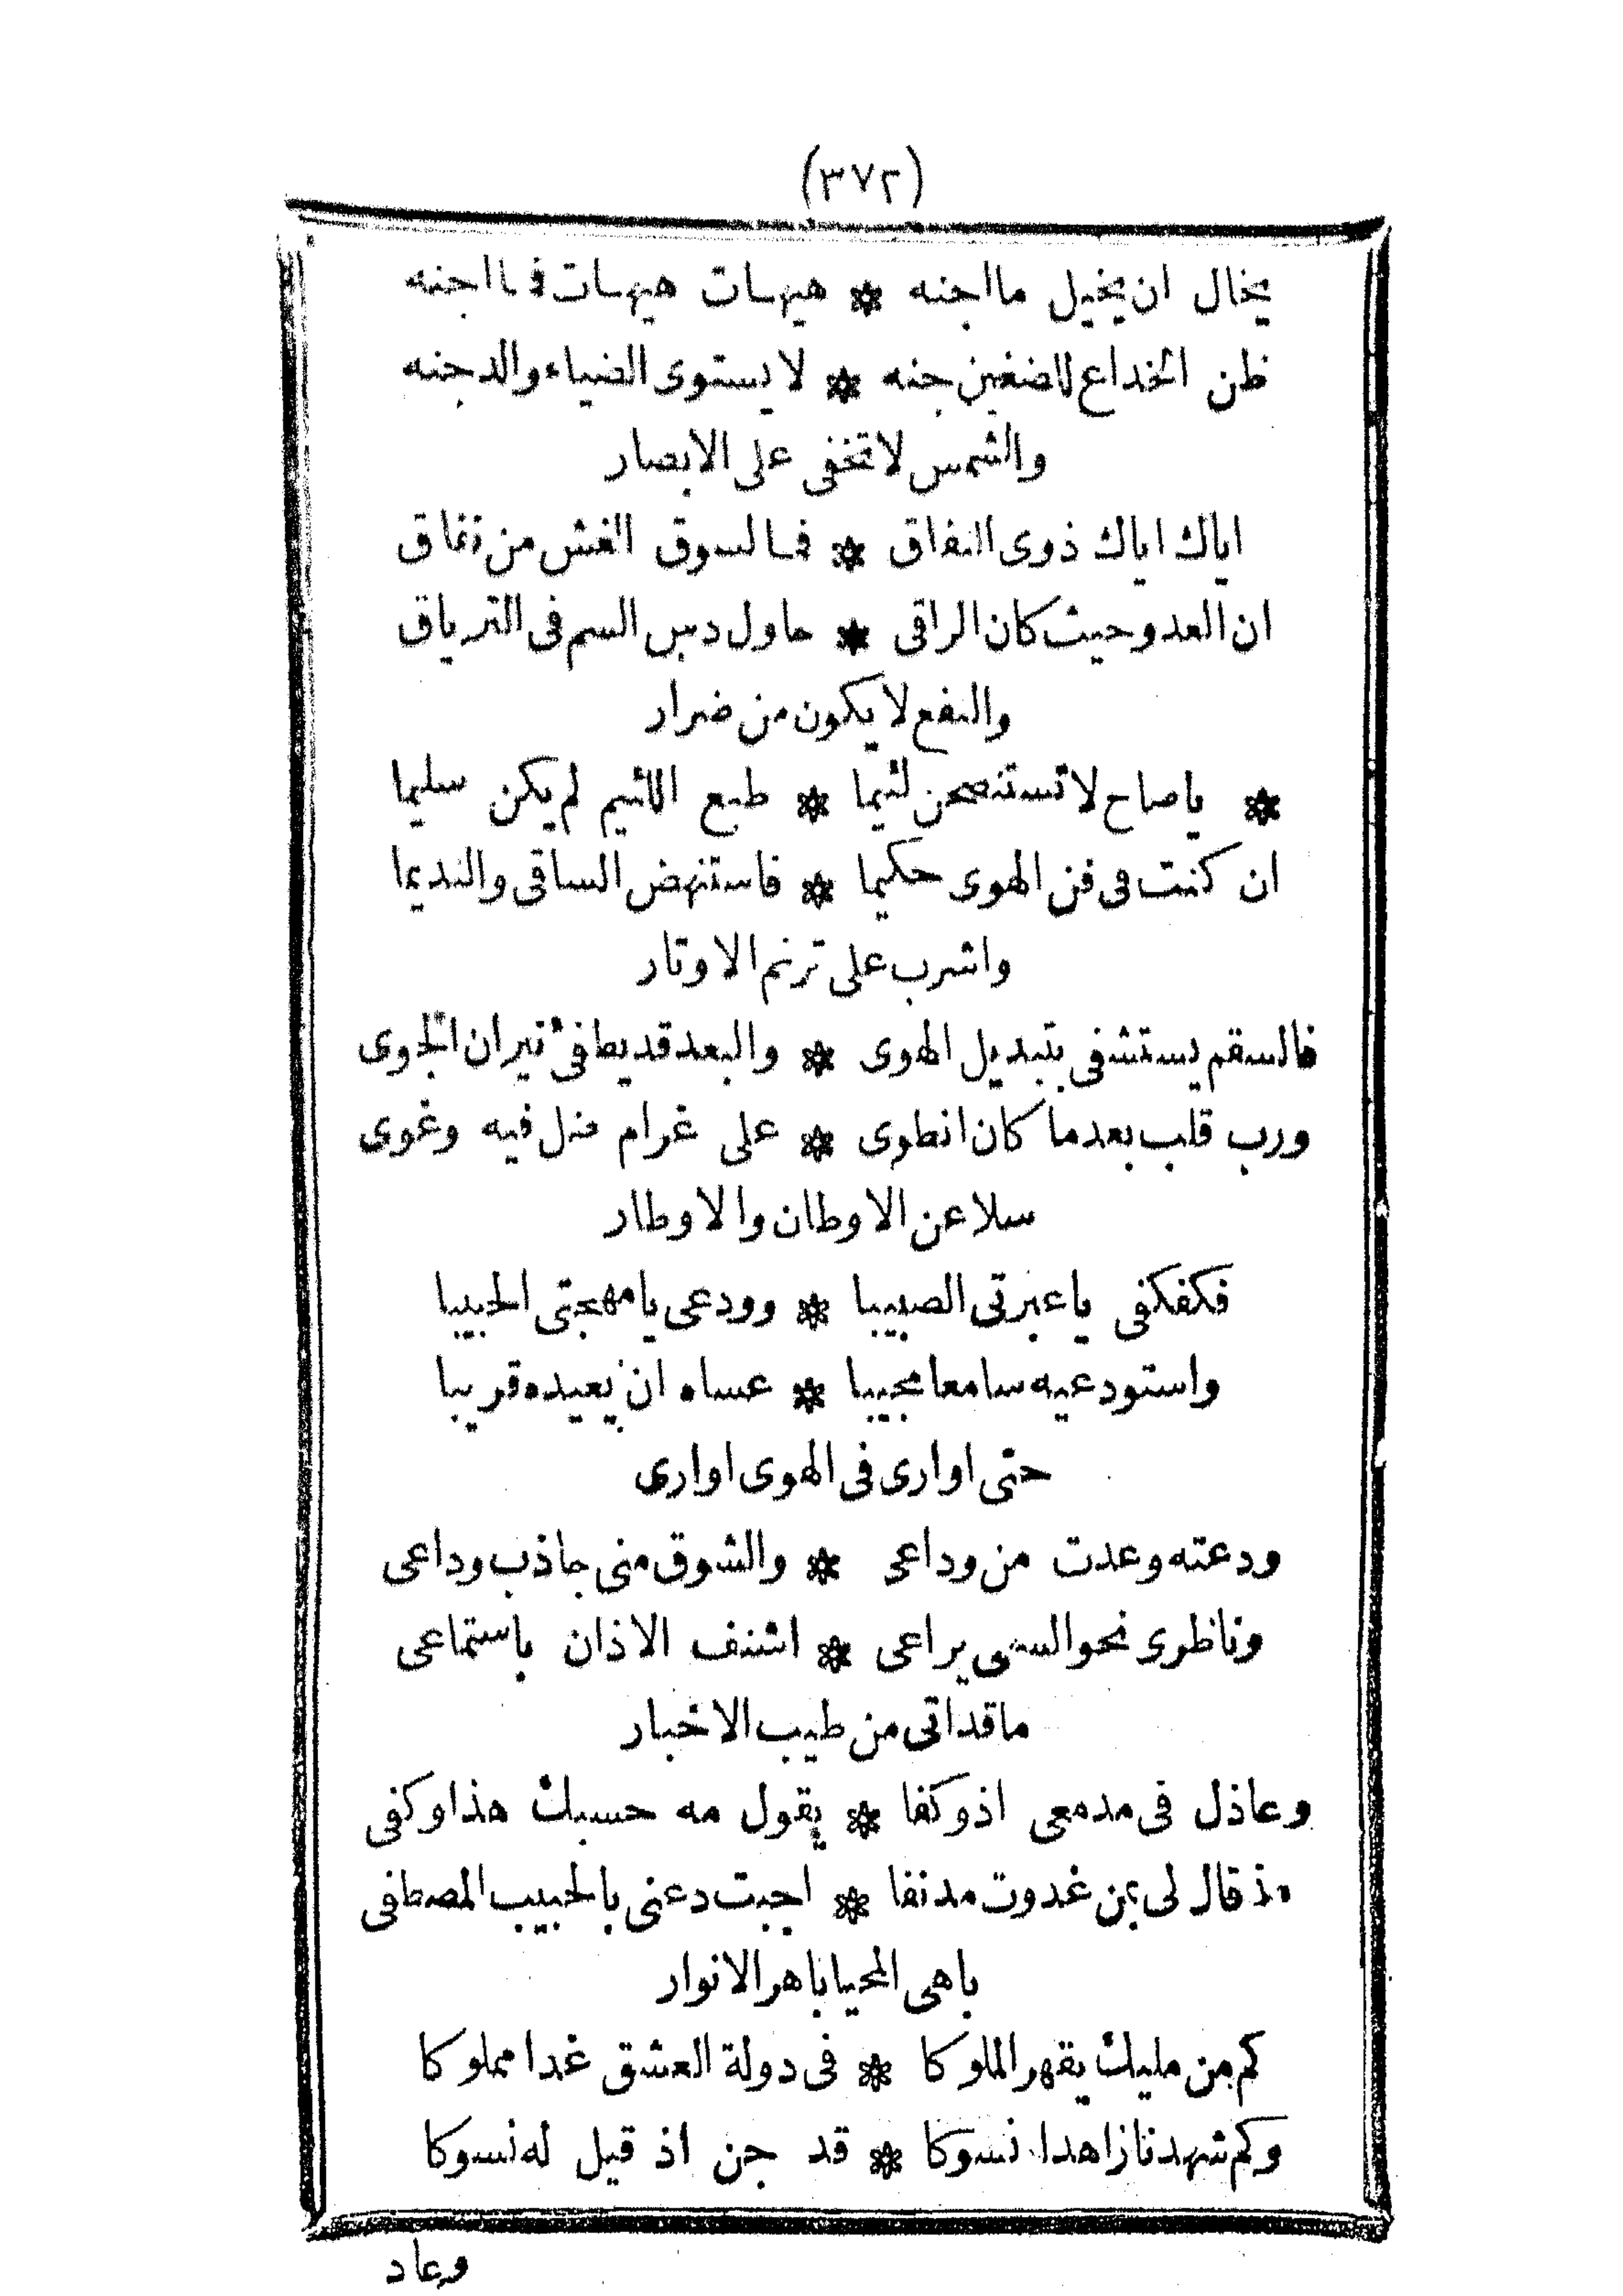 (٣٧٢)
يخال ان يخيل ما اجنه * هيهات هيهات فما اجنه
ظن الخداع للضغين جنه * لا يستوى الضياء والدجنه
والشمس لا تخفى على الابصار
اياك اياك ذوى النفاق * فما لسوق الغش من نفاق
ان العدو حيث كان الراقى * حاول دس السم فى الترياق
والنفع لا يكون من ضرار
* يا صاح لا تستنصحن لئيما * طبع اللئيم لم يكن سليما
ان كنت فى فن الهوى حكيما * فاستنهض الساقى والنديما
واشرب على ترنم الاوتار
فالسقم يستشفى بتبديل الهوى * والبعد قد يطفئ نيران الجوى
ورب قلب بعدما كان انطوى * على غرام ضل فيه وغوى
سلا عن الاوطان والاوطار
فكفكفى يا عبرتى الصبيبا * وودعى يا مهجتى الحبيبا
واستودعيه سامعا مجيبا * عساه ان يعيده قريبا
حتى اوارى فى الهوى اوارى
ودعته وعدت من وداعى * والشوق منى جاذب وداعى
وناظرى نحو السمى يراعى * اشنف الاذان باستماعى
ما قد اتى من طيب الاخبار
وعاذل فى مدمعى اذ وكفا * يقول مه حسبك هذا وكفى
مذ قال لى بمن غدوت مدنفا * اجبت دعنى بالحبيب المصطفى
باهى المحيا باهر الانوار
كم من مليك يقهر الملوكا * فى دولة العشق غدا مملوكا
وكم شهدنا زاهدا نسوكا * قد جن اذ قيل له نسوكا
وعاد